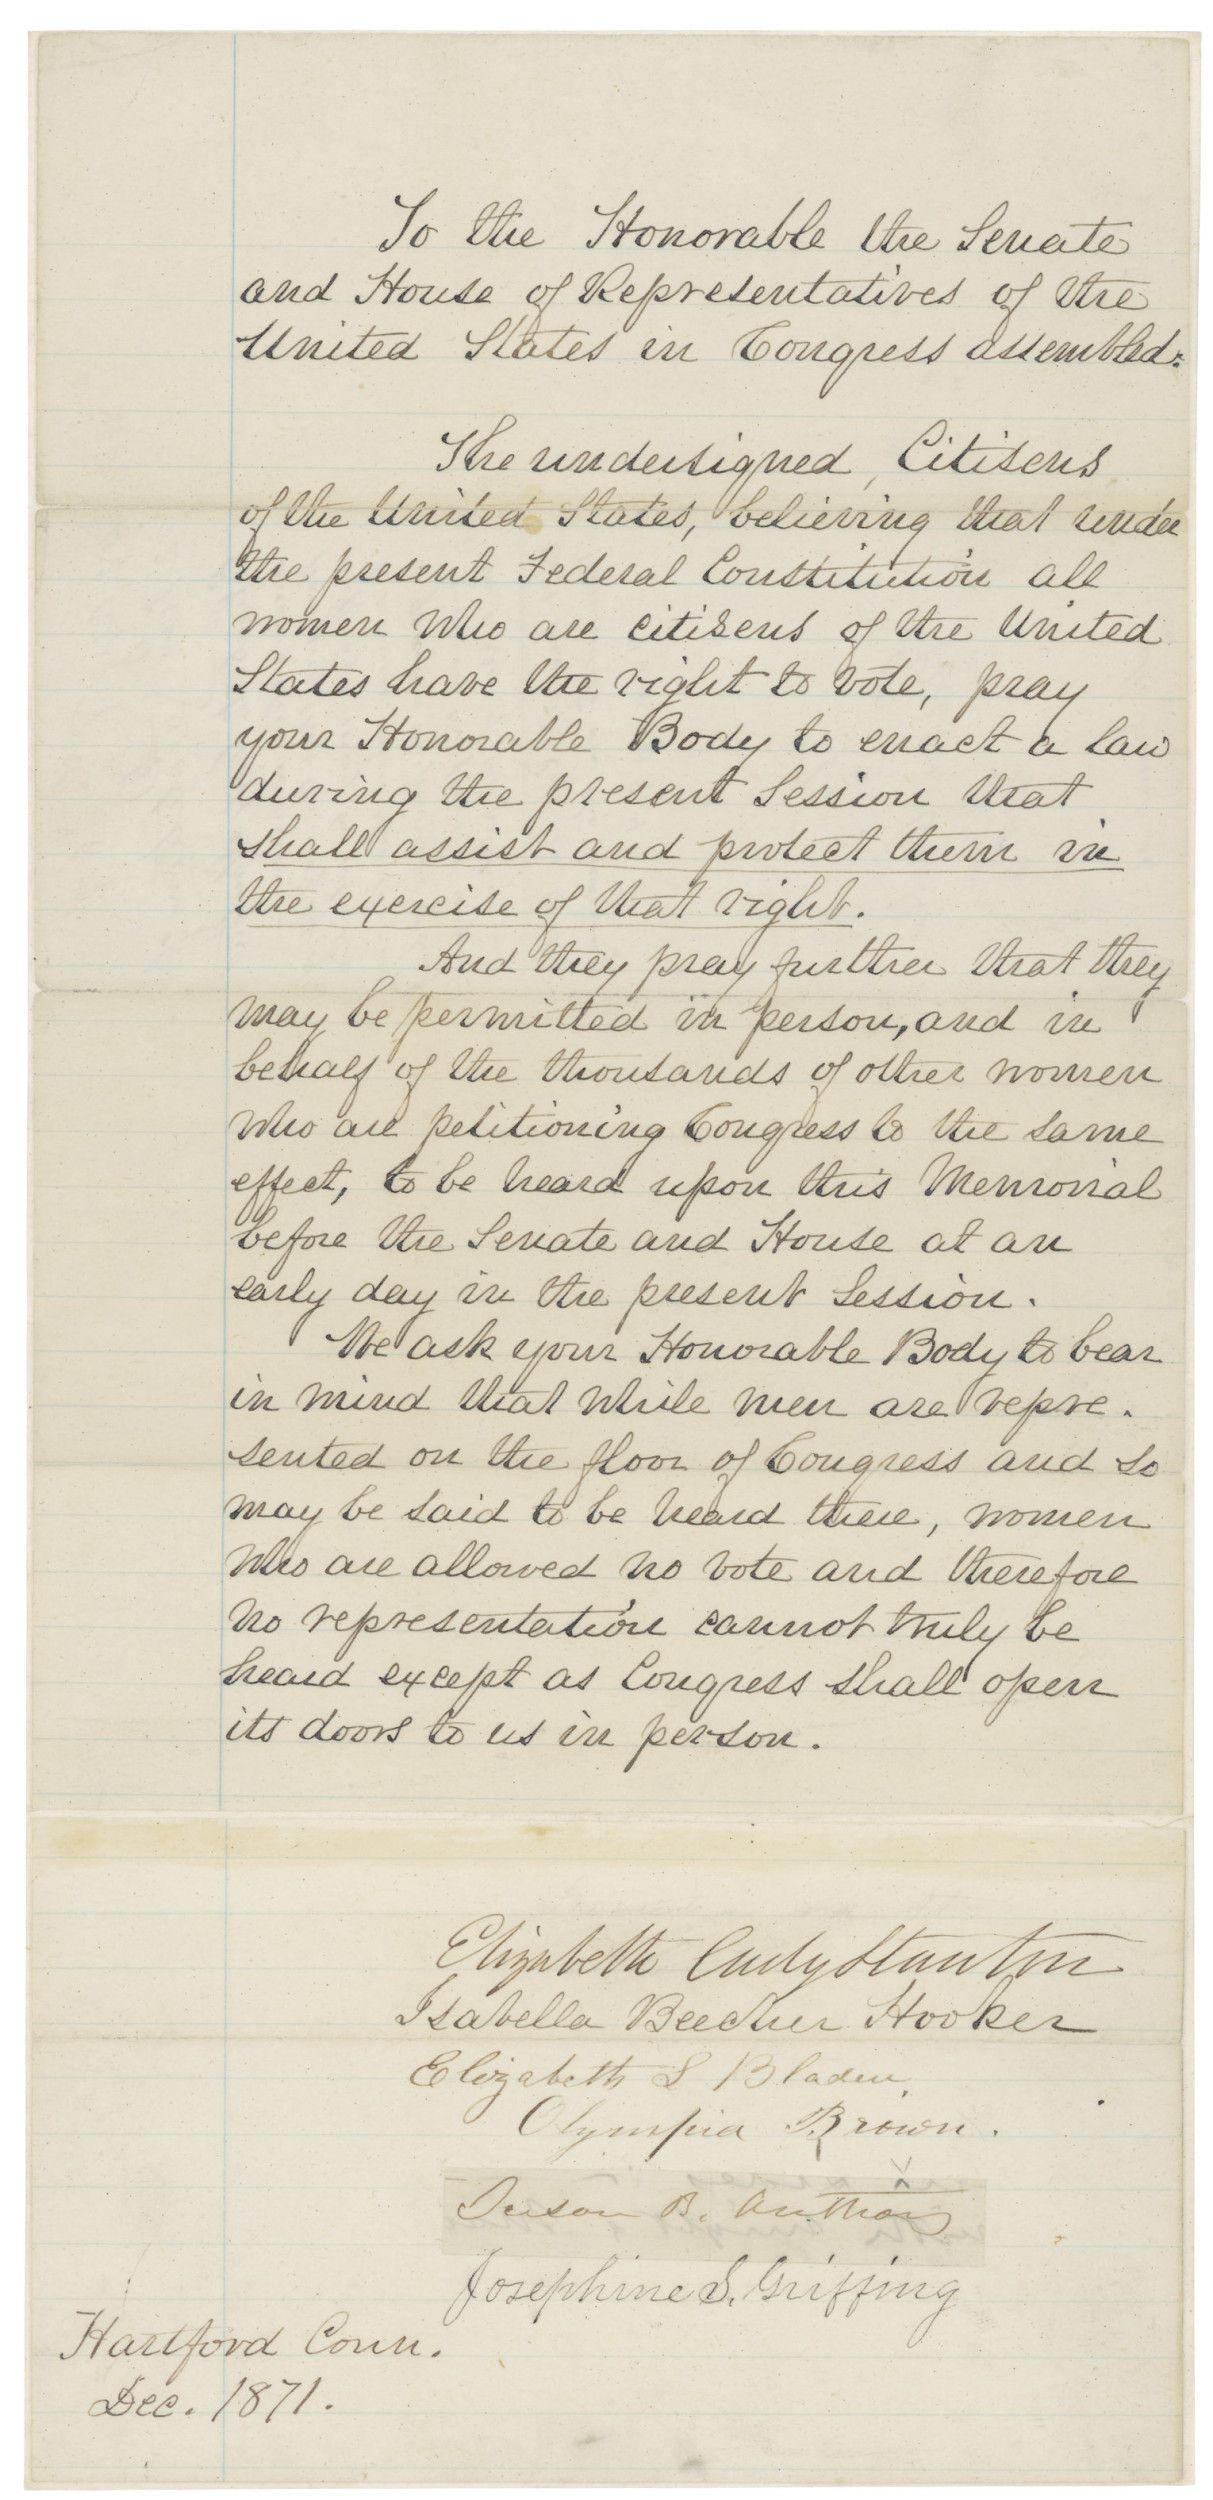 To the Honorable the Senate
and House of Representatives of the
United States in Congress assembled:
The undersigned, Citizens
of the United States, believing that under
the present Federal Constitution all
women who are citizens of the United
States have the right to vote, pray
your Honorable Body to enact a law
during the present Session that
shall assist and protect them in
the exercise of that right.
And they pray further that they
may be permitted in person, and in
behalf of the thousands of other women
who are petitioning Congress to the same
effect, to be heard upon this Memorial
before the Senate and House at an
early day in the present Session.
We ask your Honorable Body to bear
in mind that while men are repre-
sented on the floor of Congress and so
may be said to be heard there, women
who are allowed no vote and therefore
no representation cannot truly be
heard except as Congress shall open
its doors to us in person.
Elizabeth Cady Stanton
Isabella Beecher Hooker
Elizabeth S Bladen,
Olympia Brown.
Susan B. Anthony
Josephine S. Griffing
Hartford Conn.
Dec. 1871.